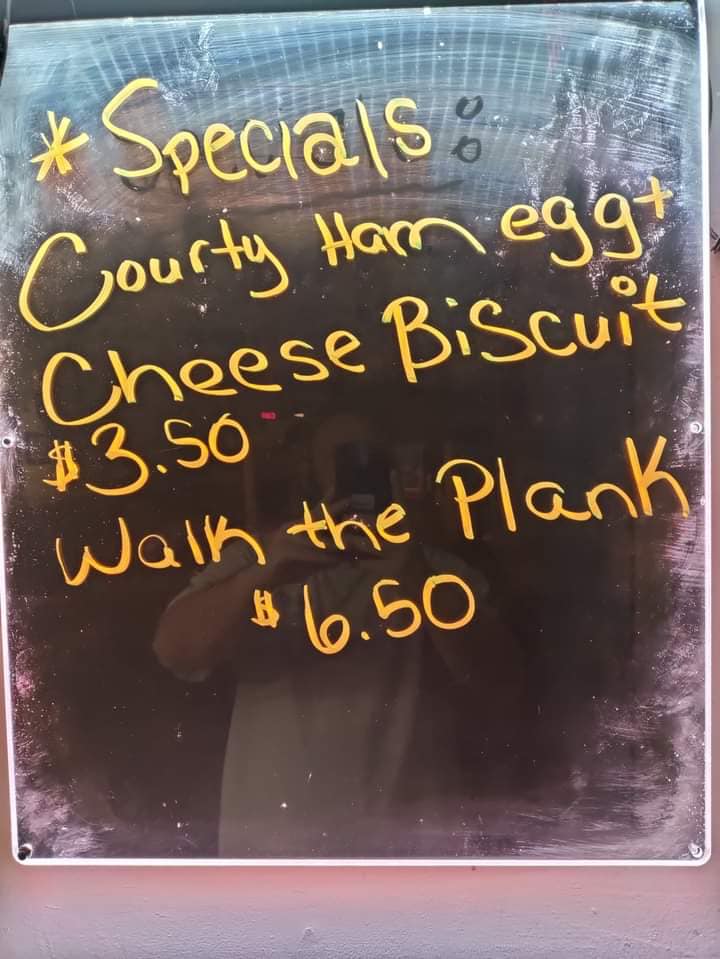 * Specials:
Courty Ham egg +
Cheese Biscuit
$3.50
Walk the Plank
$6.50